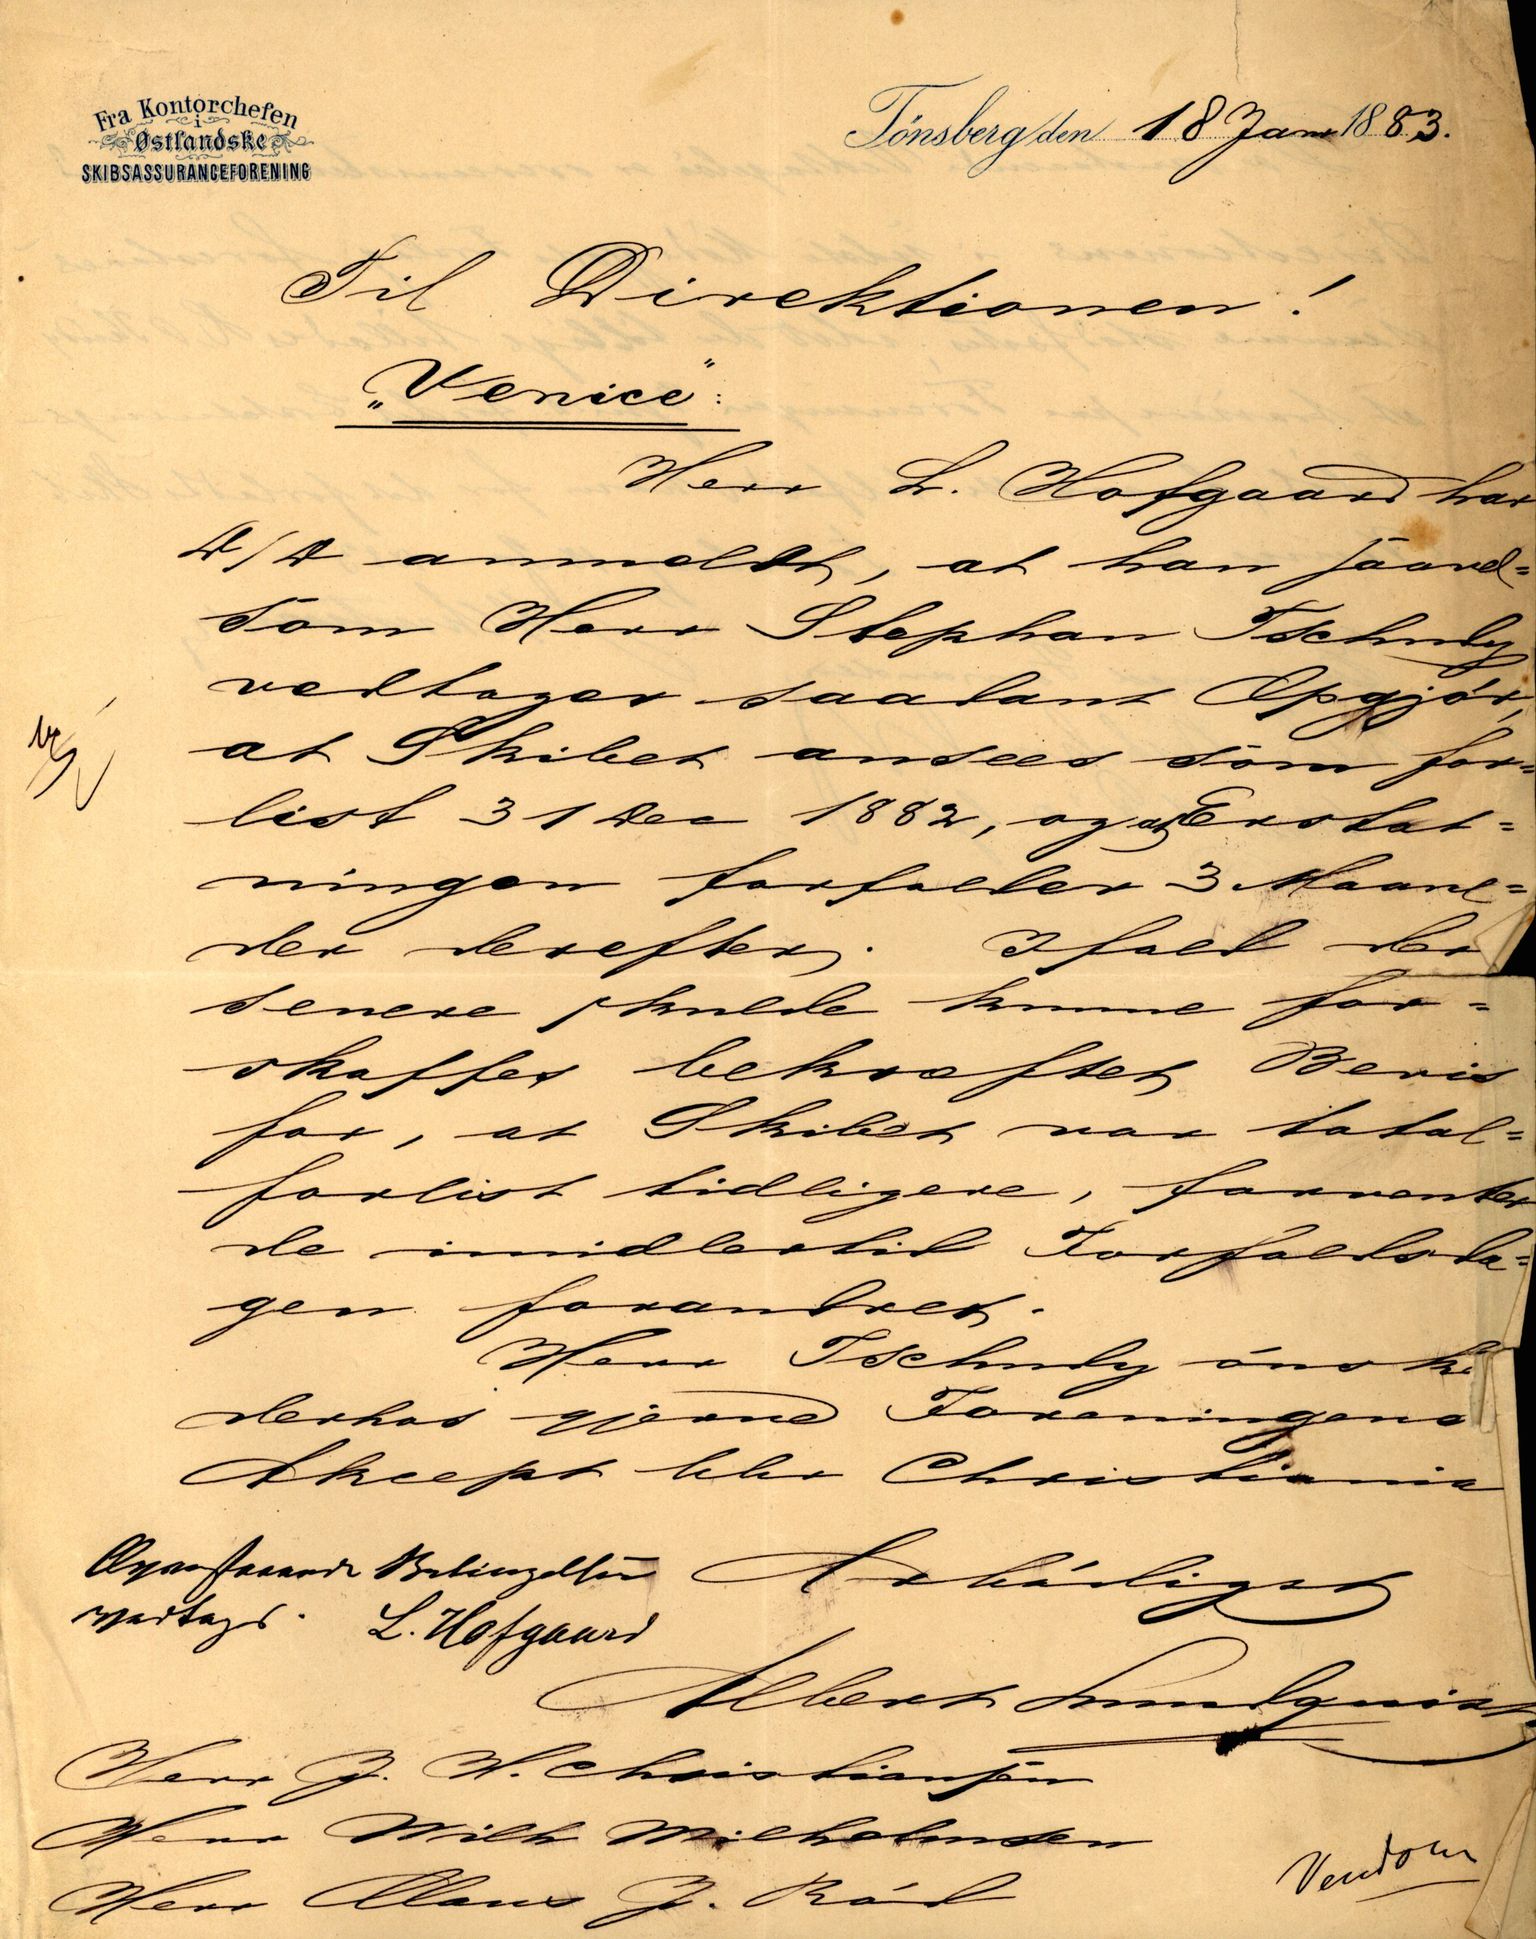 Fra Kontorchefen
i
Østlandske
SKIBSASSURANCEFORENING
Tönsberg, den 18 Janr 1883.
Til Direktionen!
„Venice":
Herr L. Hofgaard har
D/D anmeldt, at han saavel=
som Herr Stephan Tschudy
vedtager saadant Opgjör,
at Skibet ansees som for=
list 31 Dec 1882, og at Erstat=
ningen forfalder 3 Maane=
der derefter. Ifald der
senere skulde kunne for=
skaffes bekræftet Bevis
for, at Skibet var total=
forlist tidligere, forventer
de imidlertid Forfaldsda=
gen forandret.
Herr Tschudy önsk
derhos gjerne Foreningens
Akcept blir Christiania
Ovenstaaende Betingelser
vedtages. L. Hofgaard
Arbödigst
Albert Lundquist
Herr J. H. Christiansen
Herr Wilh Wilhelmsen
Herr Claus J. Röd
Vendom